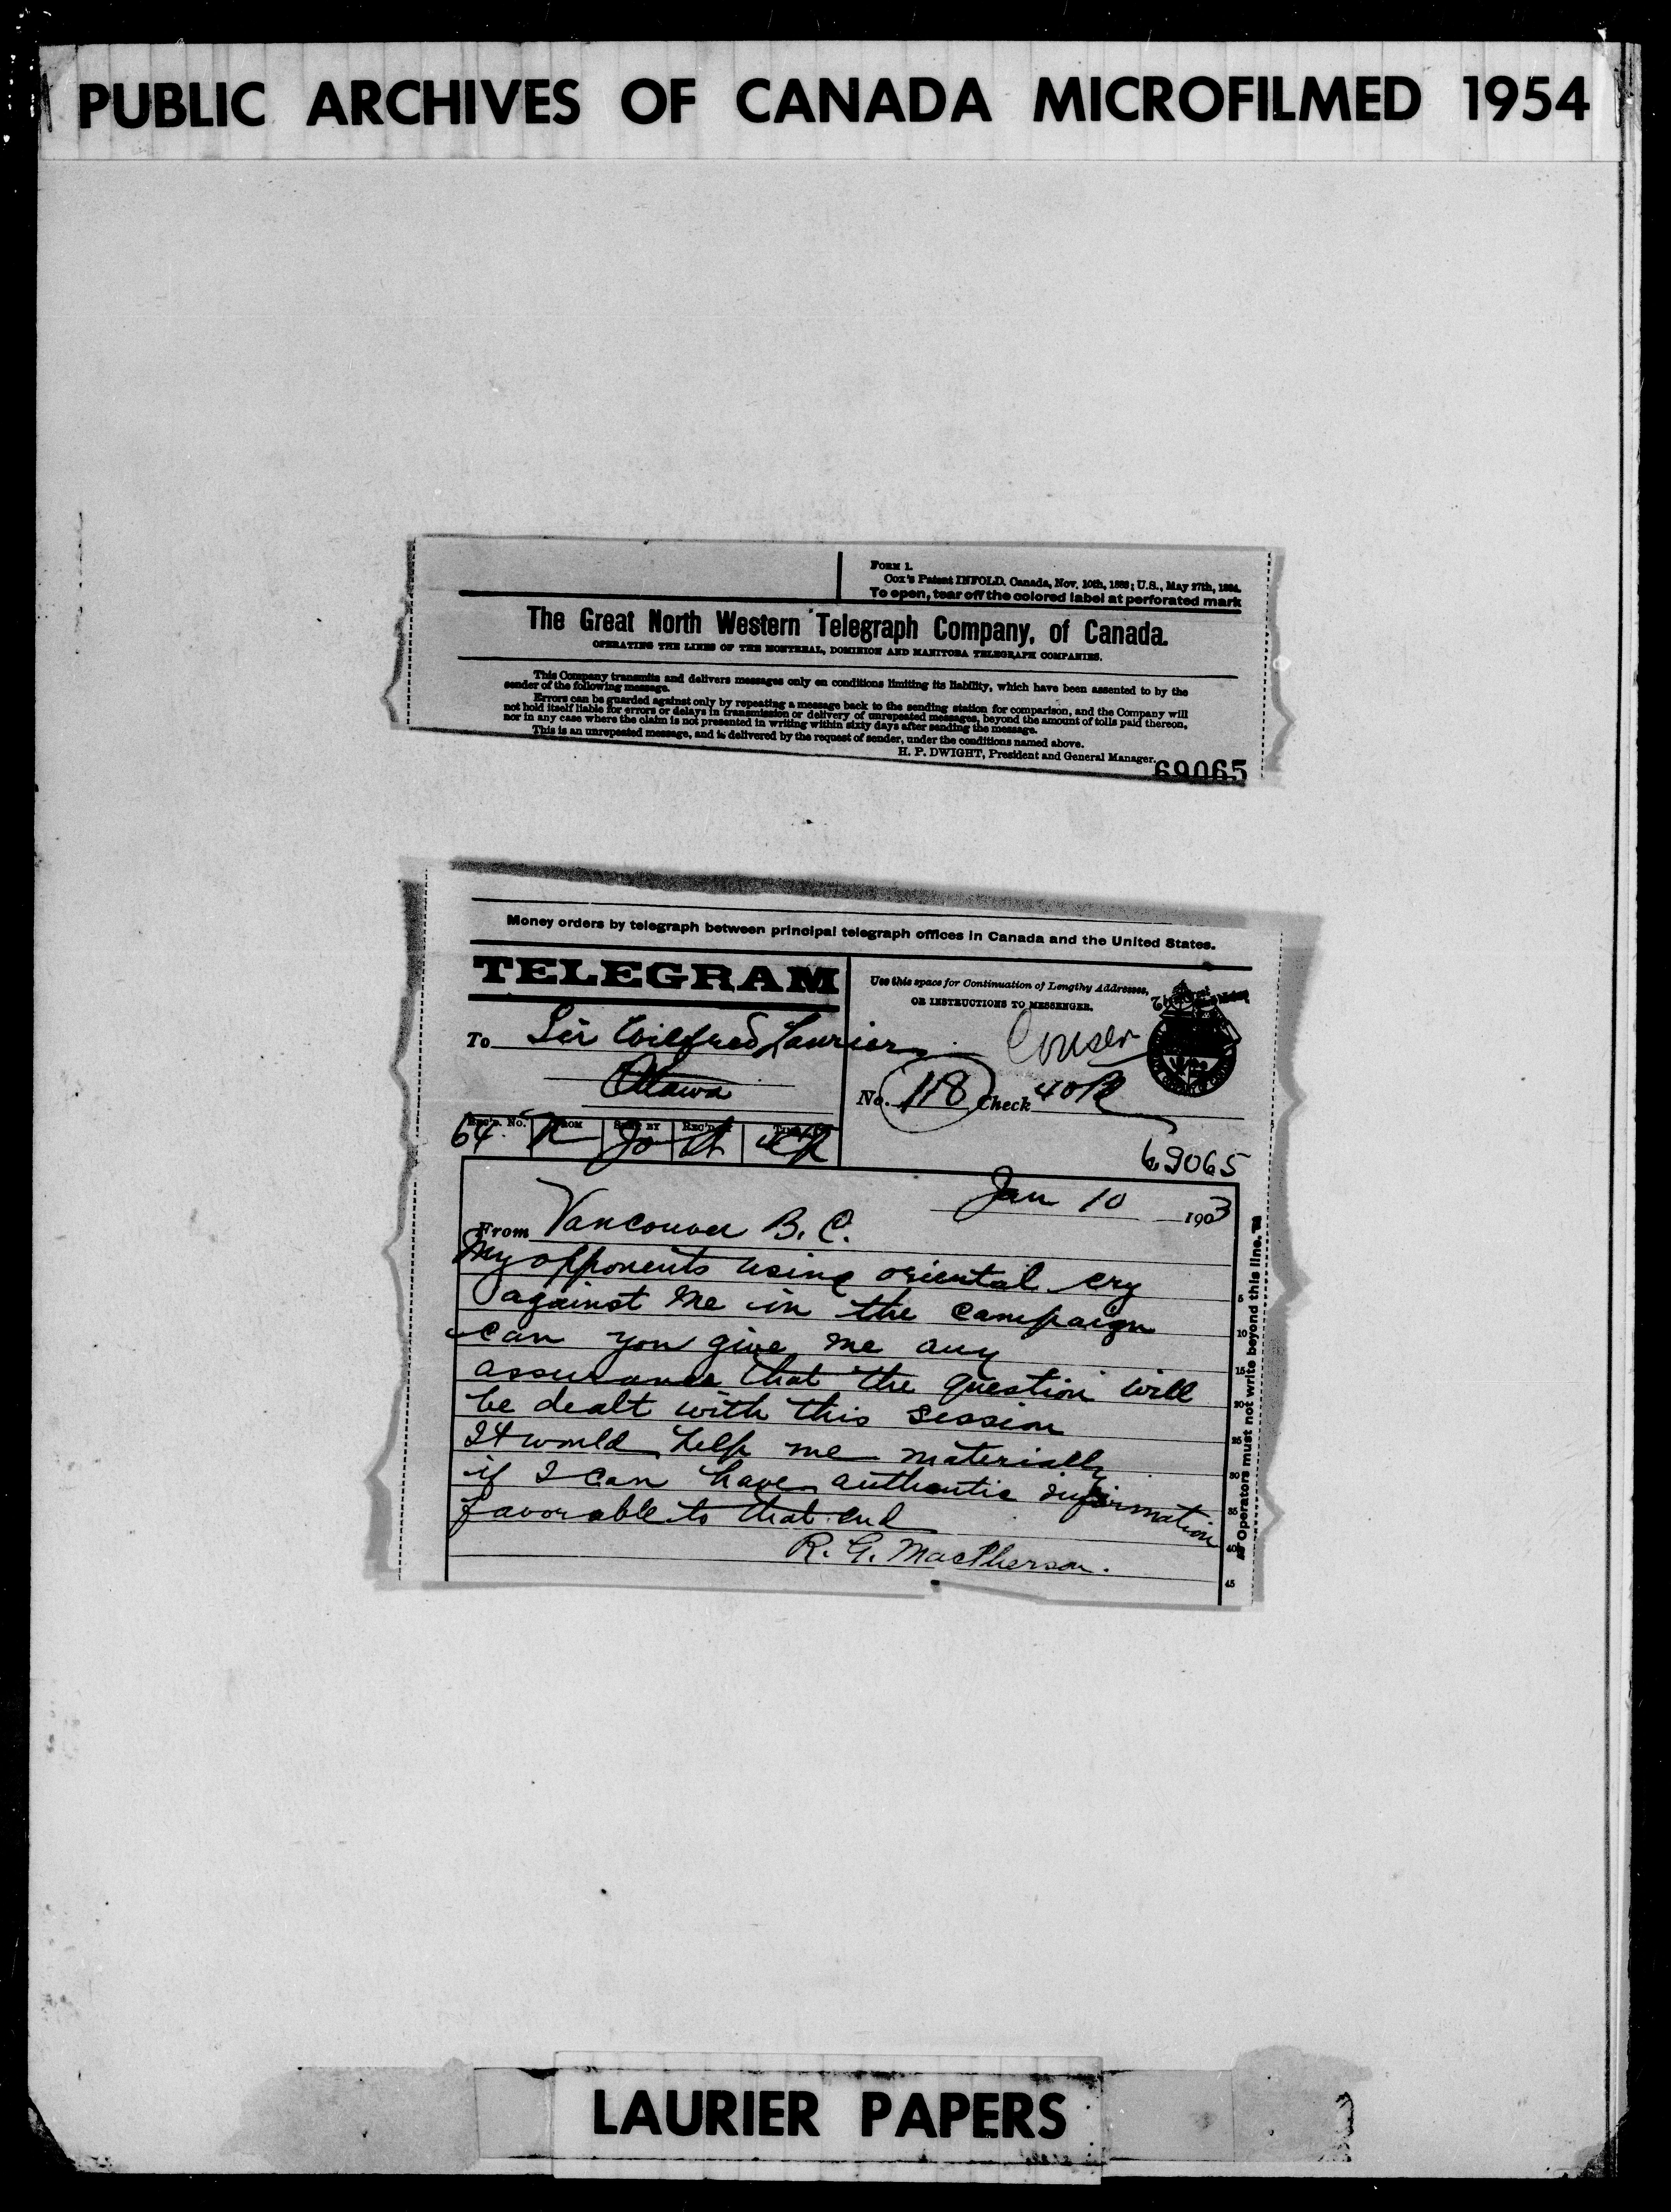 PUBLIC ARCHIVES OF CANADA MICROFILMED 1954
FORM 1.
Cox's Patent INFOLD. Canada, Nov. 10th, 1889; U.S., May 27th, 1884.
To open, tear off the colored label at perforated mark
The Great North Western Telegraph Company, of Canada.
OPERATING THE LINES OF THE MONTREAL, DOMINION AND MANITOBA TELEGRAPH COMPANIES.
This Company transmits and delivers messages only on conditions limiting its liability, which have been assented to by the
sender of the following message.
Errors can be guarded against only by repeating a message back to the sending station for comparison, and the Company will
not hold itself liable for errors or delays in transmission or delivery of unrepeated messages, beyond the amount of tolls paid thereon,
nor in any case where the claim is not presented in writing within sixty days after sending the message.
This is an unrepeated message, and is delivered by the request of sender, under the conditions named above.
H. P. DWIGHT, President and General Manager.
69065
Money orders by telegraph between principal telegraph offices in Canada and the United States.
TELEGRAM
Use this space for Continuation of Lengthy Addresses,
OR INSTRUCTIONS TO MESSENGER.
To Sir Wilfred Laurier
Ottawa
No. 118 Check 40
64
69065
Jan 10 1903
From Vancouver B. C.
My opponents using oriental cry
against me in the campaign
can you give me any
assurance that the question will
be dealt with this session
It would help me materially
if I can have authentic information
favorable to that end
R. G. MacPherson.
5
10
15
20
25
30
35
40
45
Operators must not write beyond this line.
LAURIER PAPERS